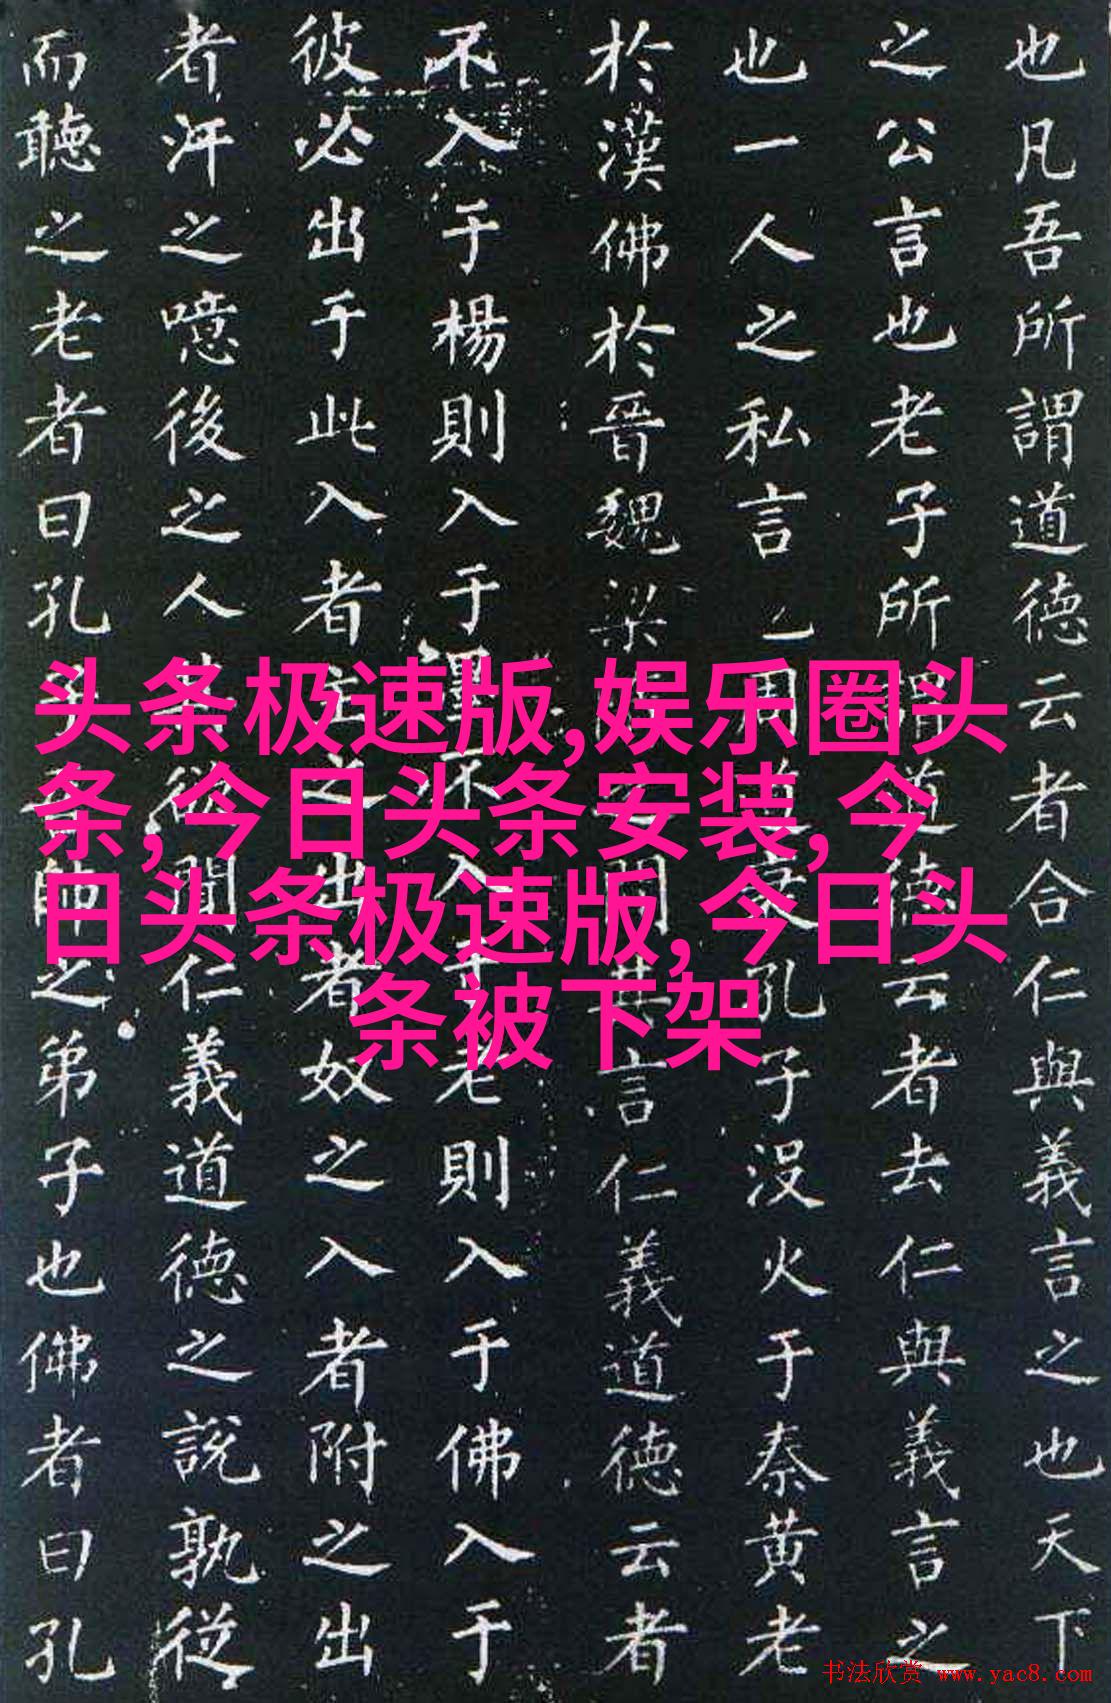 也凡吾所謂道德云者合仁與義言之也天下
之公言也老子所謂道德云者去仁與義言之
也一人之私言也周道衰孔子没火于秦黄老
於漢佛於晉魏梁之間其言仁義道德云者
不入于楊則入于墨不入于老則入于佛入于
彼必出于此入者主之出者奴之入者附之出
者汙之噫後之人其欲聞仁義道德之說孰從
而聽之老者曰孔子吾師之弟子也佛者曰孔
头条极速版,娱乐圈头
条,今日头条安装,今
日头条极速版,今日头
条被下架
书法欣赏 www.yac8.com